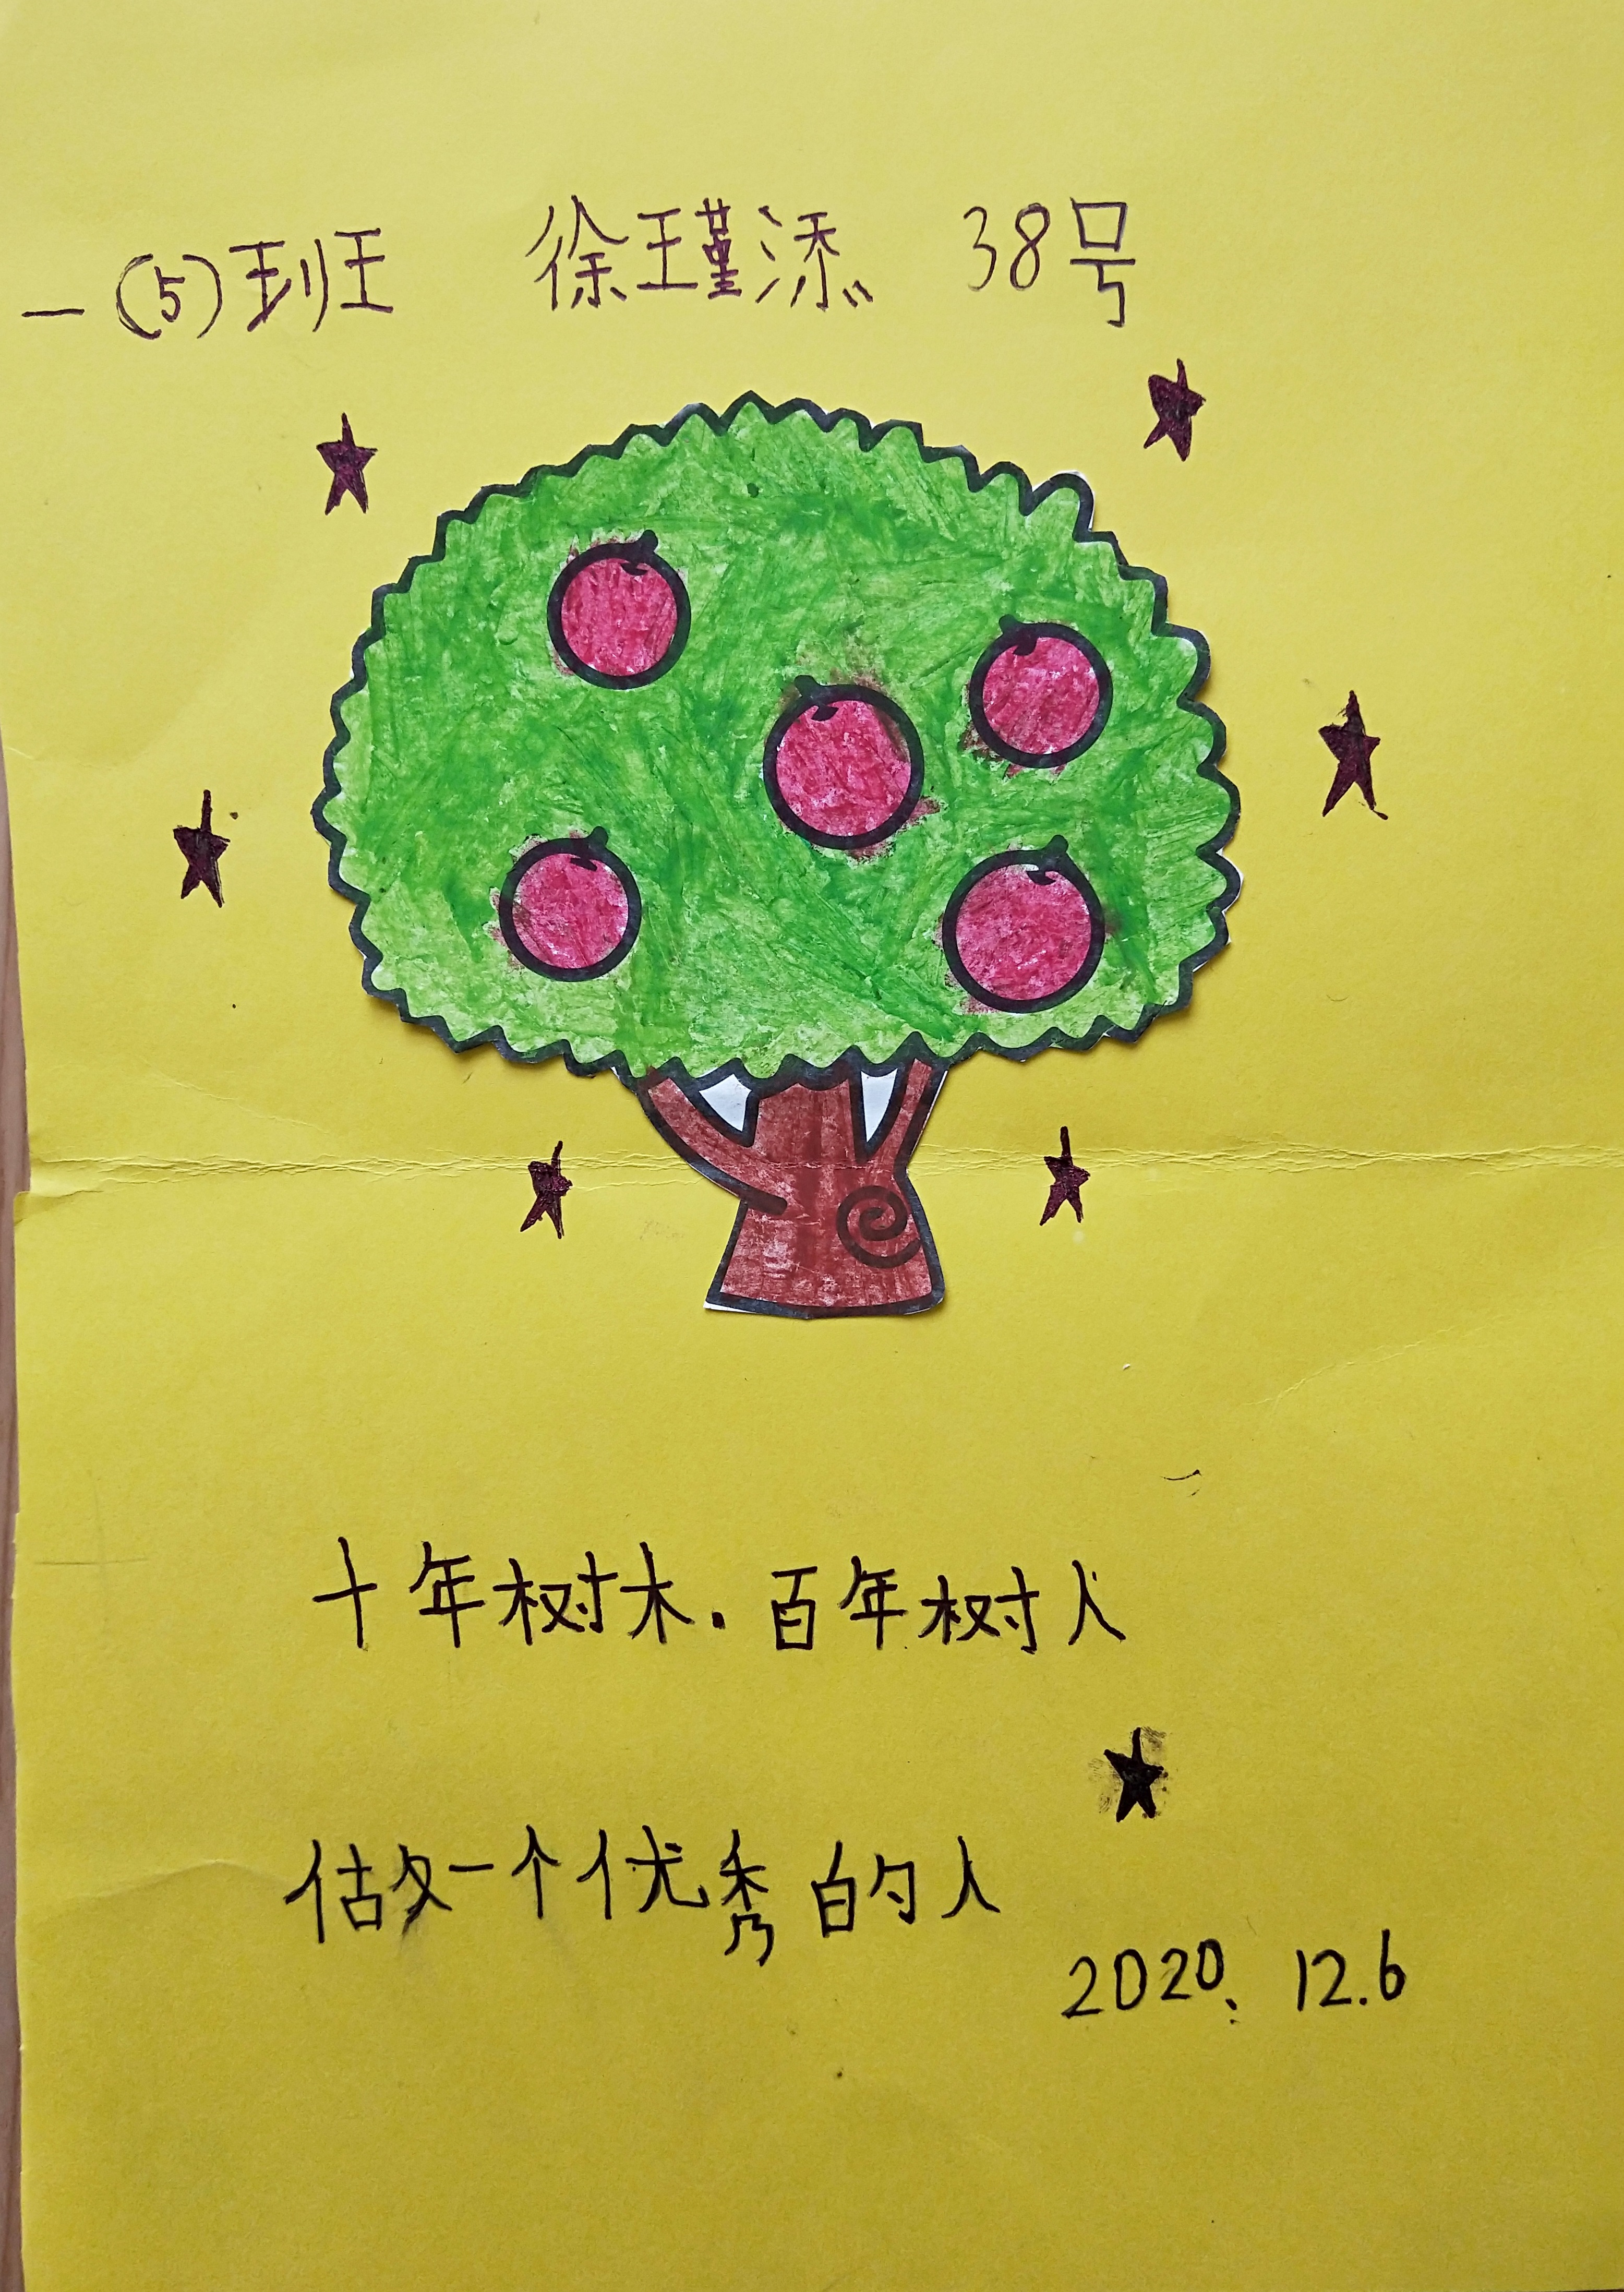 一(5)班 徐瑾添 38号
十年树木.百年树人
做一个优秀的人
2020.12.6